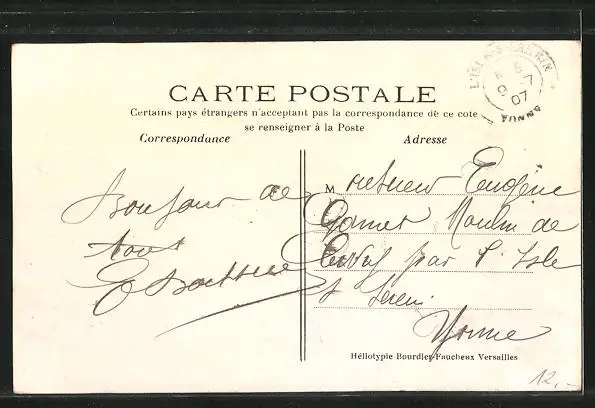 L'ISLE-S-SEREIN
07
YONNE
CARTE POSTALE
Certains pays étrangers n'acceptant pas la correspondance de ce côté
se renseigner à la Poste
Correspondance
Adresse
Bonjour de
tous
Monsieur Eugène
Moulin de
par l'Isle
s Serein
Yonne
Héliotypie Bourdier-Faucheux Versailles
12,-